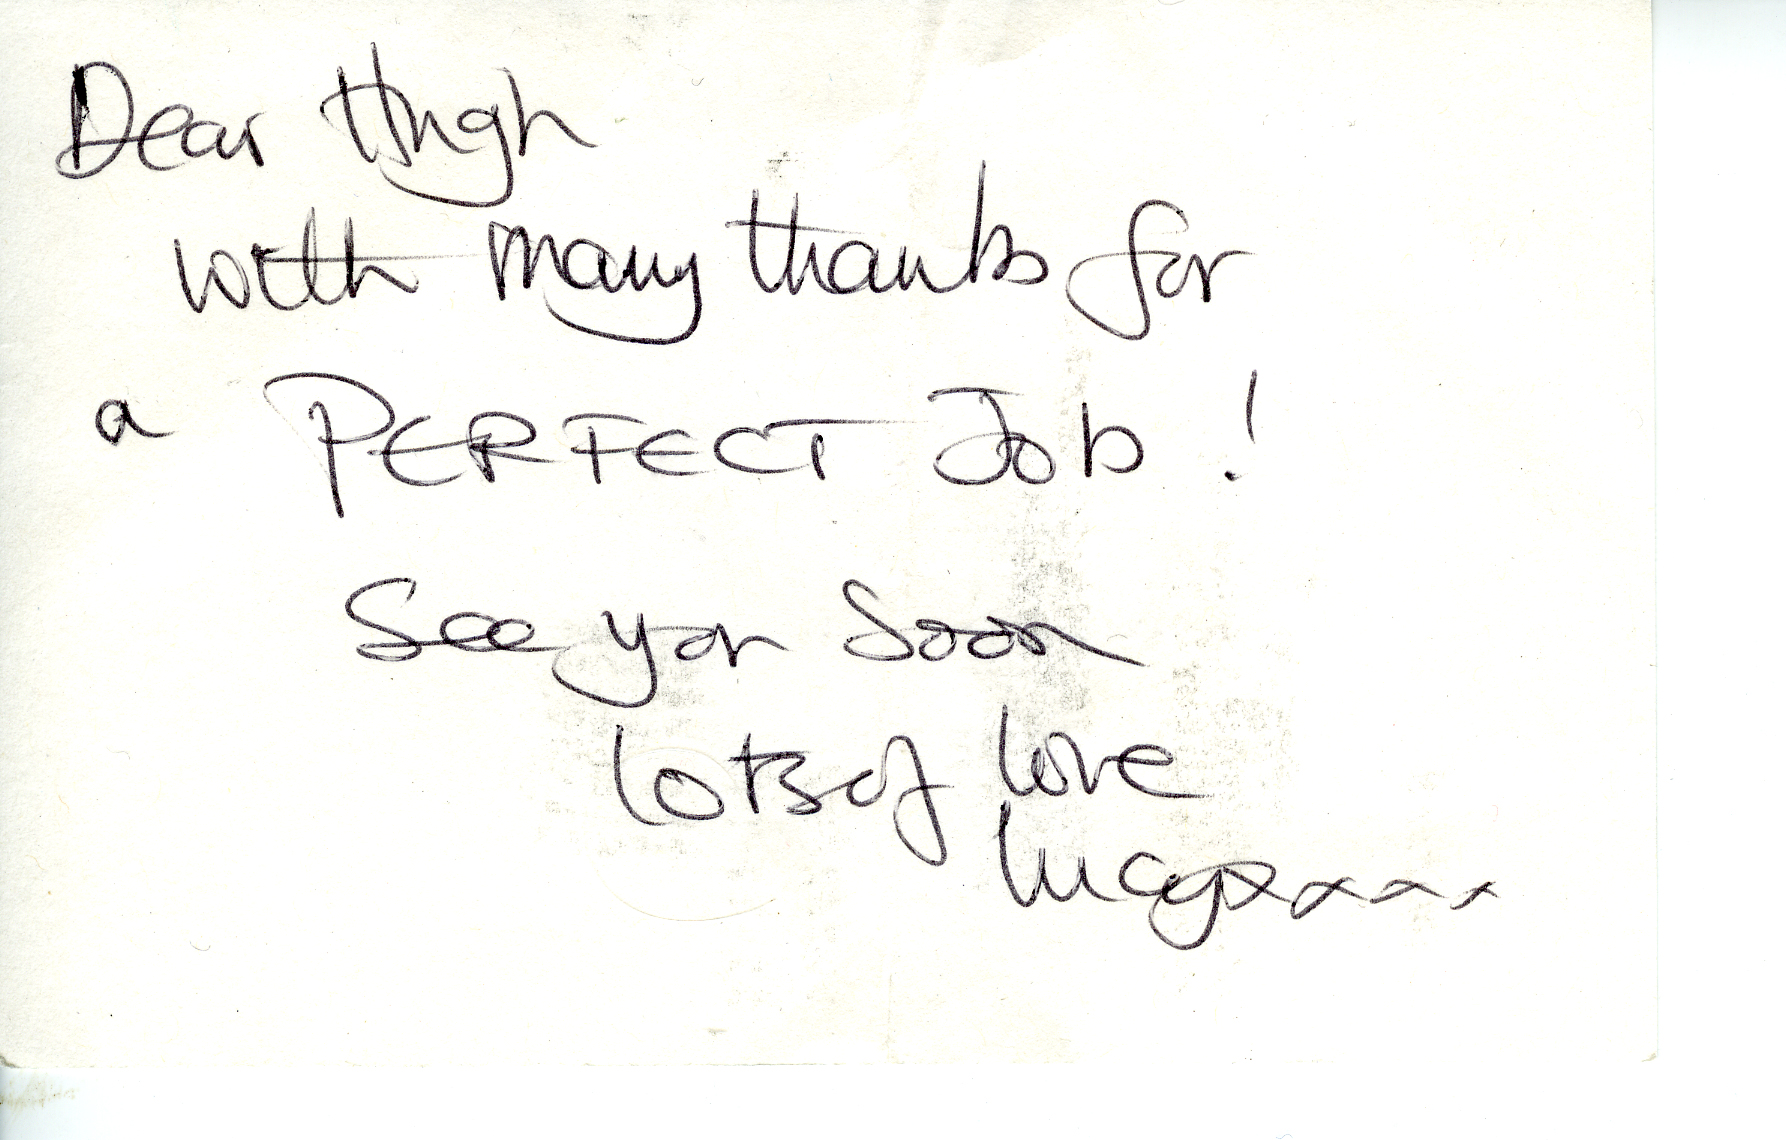 Dear Hugh
with many thanks for
a PERFECT Job!
See you Soon
lots of love
Lucy xxxx